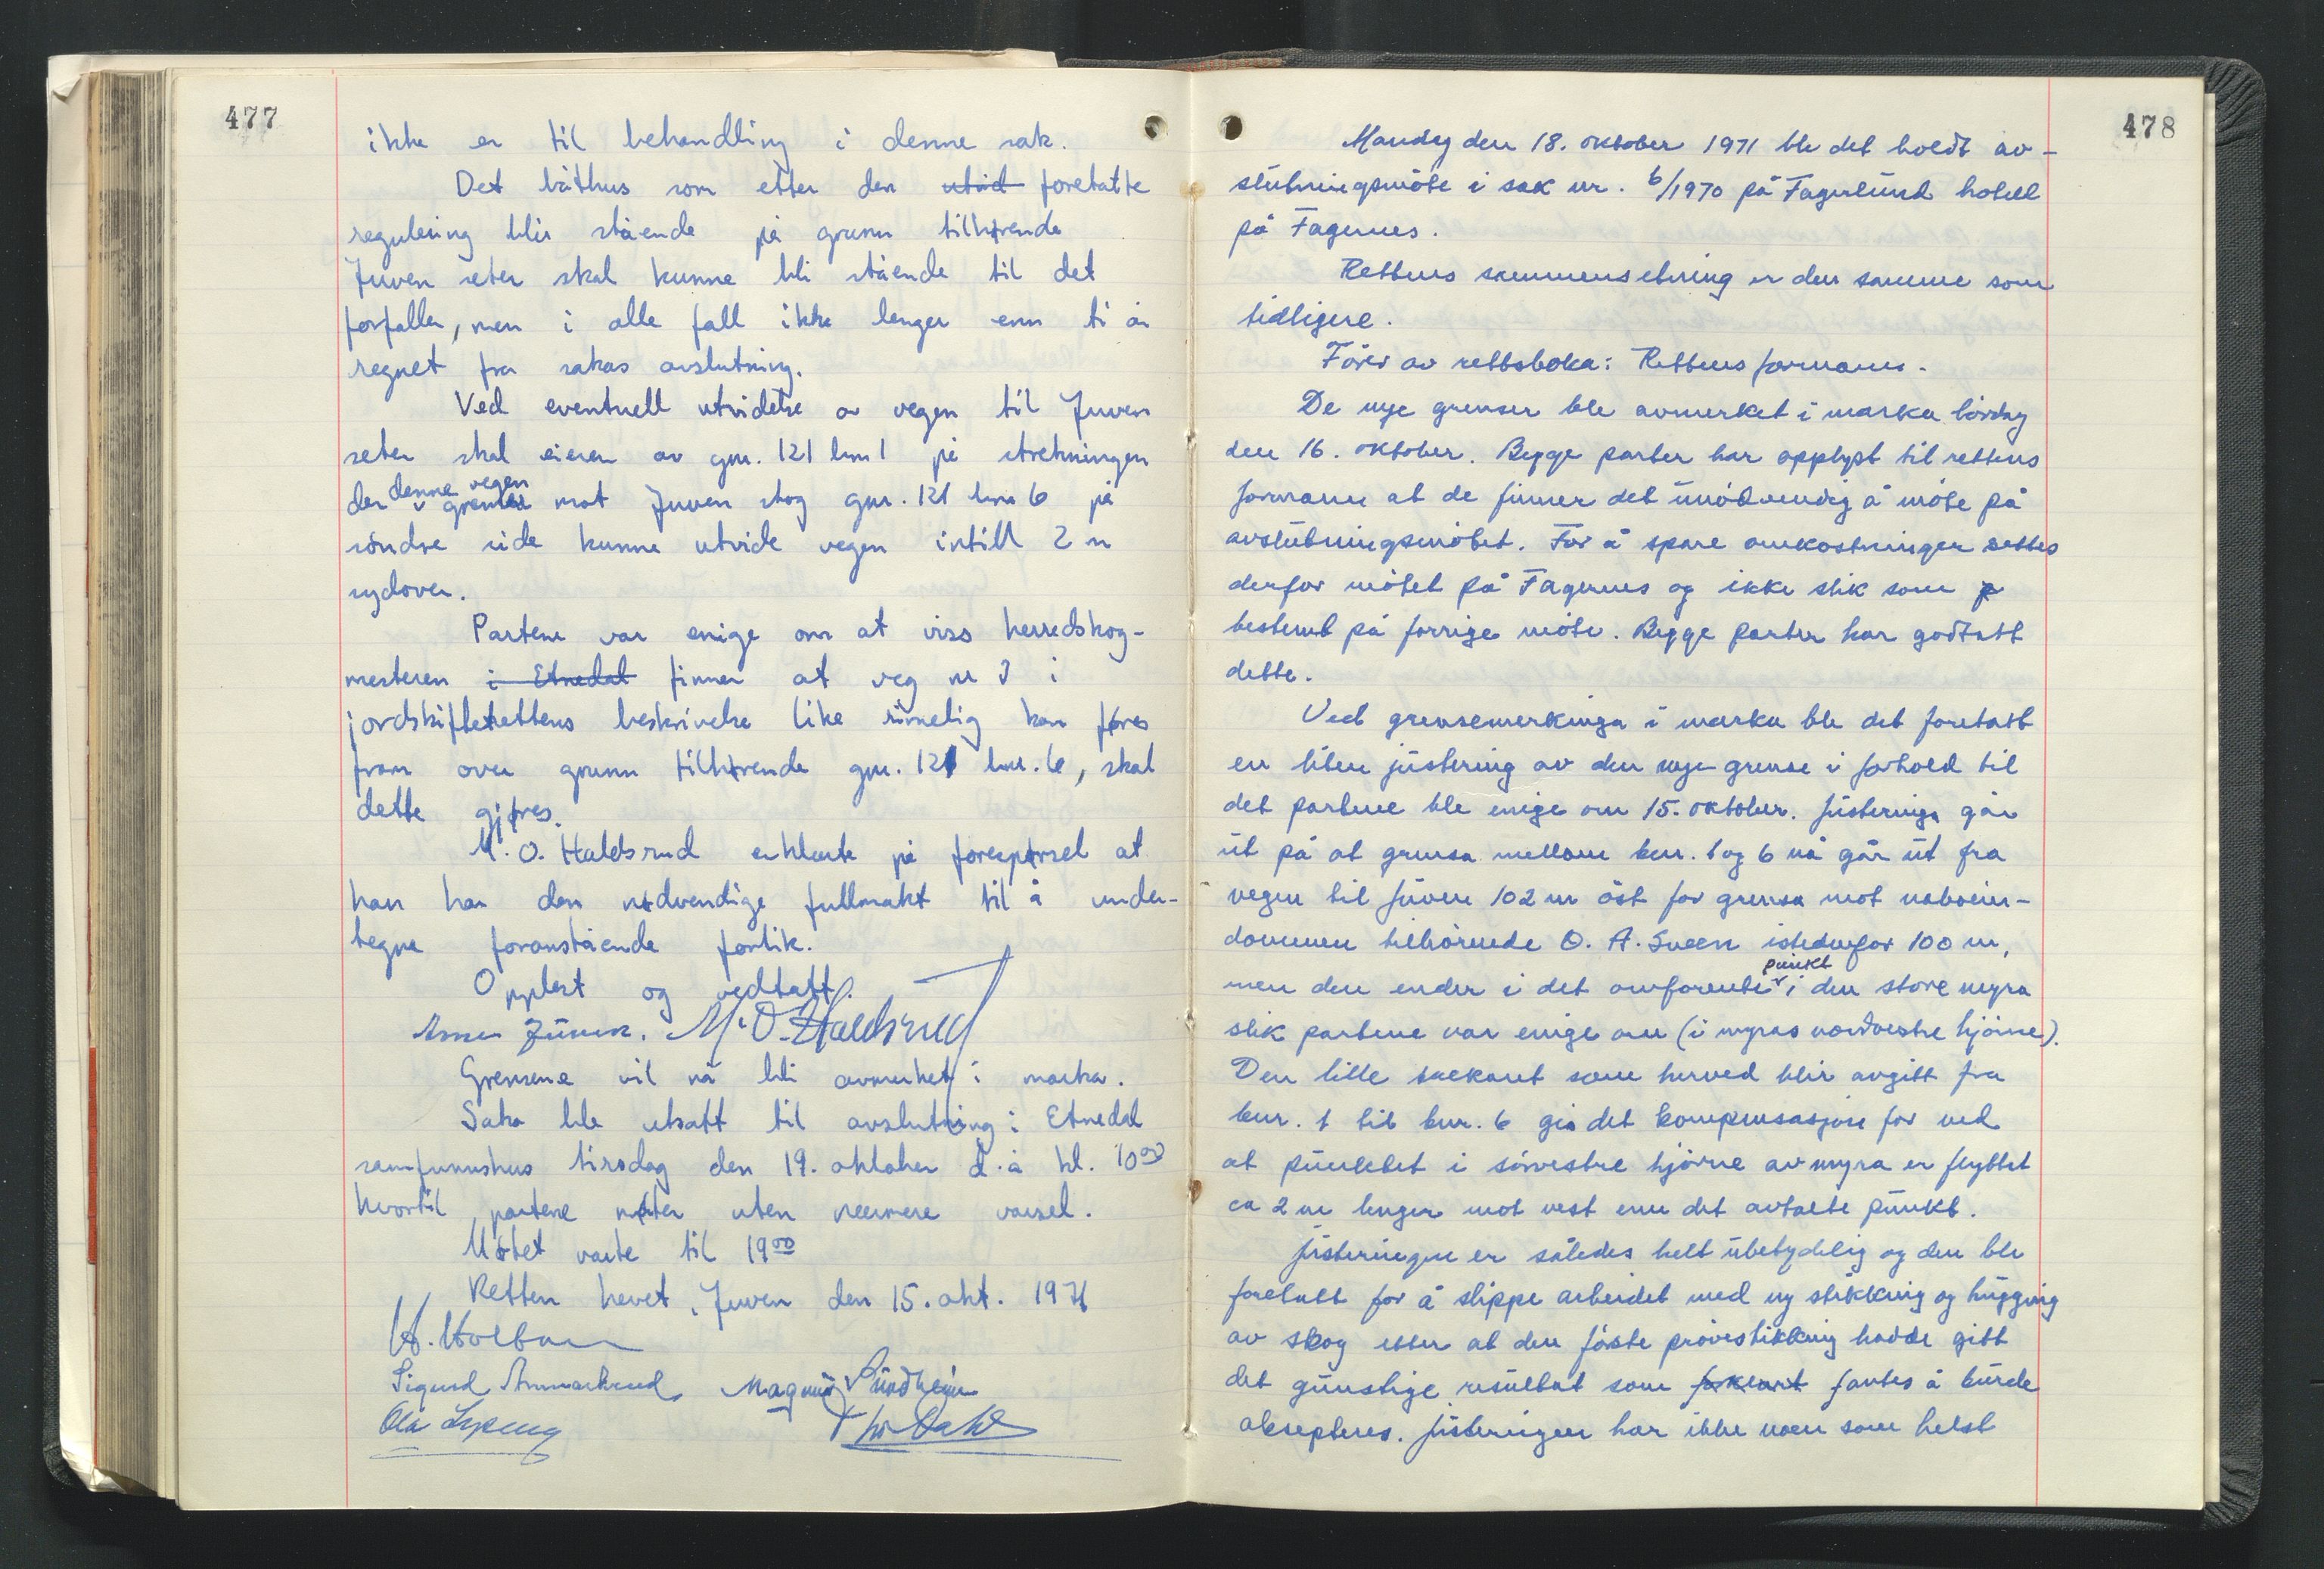 477
ikke er til behandling i denne sak.
Det båthus som etter den utvid foretatte
regulering blir stående på grunn tilhørende
Juven seter skal kunne bli stående til det
forfaller, men i alle fall ikke lenger enn ti år
regnet fra sakas avslutning.
Ved eventuell utvidelse av vegen til Juven
seter skal eieren av gnr. 121 bnr 1 på strekningen
der denne vegen grenser mot Juven skog gnr. 121 bnr 6 på
söndre side kunne utvide vegen intill 2 m
sydover.
Partene var enige om at viss herredskog-
mesteren i Etnedal finner at veg nr 3 i
jordskifterettens beskrivelse like rimelig kan føres
fram over grunn tilhørende gnr. 121 bnr. 6, skal
dette gjøres.
M. O. Haldsrud erklærte på forespørsel at
han har den nødvendige fullmakt til å under-
tegne foranstående forlik.
Opplest og vedtatt.
Arne Juven. M. O. Haldsrud
Grensene vil nå bli avmerket i marka.
Saka ble utsatt til avslutning i Etnedal
samfunnshus tirsdag den 19. oktober d. å kl. 10⁰⁰
hvortil partene møter uten nærmere varsel.
Møtet varte til 19⁰⁰
Retten hevet, Juven den 15. okt. 1971
Sigurd
Magnus Sundheim
Ola
478
Mandag den 18. oktober 1971 ble det holdt av-
slutningsmöte i sak nr. 6/1970 på Fagerlund hotell
på Fagernes.
Rettens sammensetning er den samme som
tidligere.
Förer av rettsboka: Rettens formann.
De nye grenser ble avmerket i marka lördag
den 16. oktober. Begge parter har opplyst til rettens
formann at de finner det unödvendig å möte på
avslutningsmötet. For å spare omkostninger settes
derfor mötet på Fagernes og ikke slik som p
bestemt på forrige möte. Begge parter har godtatt
dette.
Ved grensemerkinga i marka ble det foretatt
en liten justering av den nye grense i forhold til
det partene ble enige om 15. oktober. Justeringa går
ut på at grensa mellom bnr. 1 og 6 nå går ut fra
vegen til Juven 102 m öst for grensa mot naboeien-
dommen tilhörende O. A. Sveen istedenfor 100 m,
men den ender i det omforente punkt i den store myra
slik partene var enige om (i myras nordvestre hjörne).
Den lille trekant som herved blir avgitt fra
bnr. 1 til bnr. 6 gis det kompensasjon for ved
at punktet i sörvestre hjörne av myra er flyttet
ca 2 m lenger mot vest enn det avtalte punkt.
Justeringen er således helt ubetydelig og den ble
foretatt for å slippe arbeidet med ny stikking og hugging
av skog etter at den förste prövestikking hadde gitt
det gunstige resultat som forklart fantes å burde
aksepteres. Justeringen har ikke noen som helst